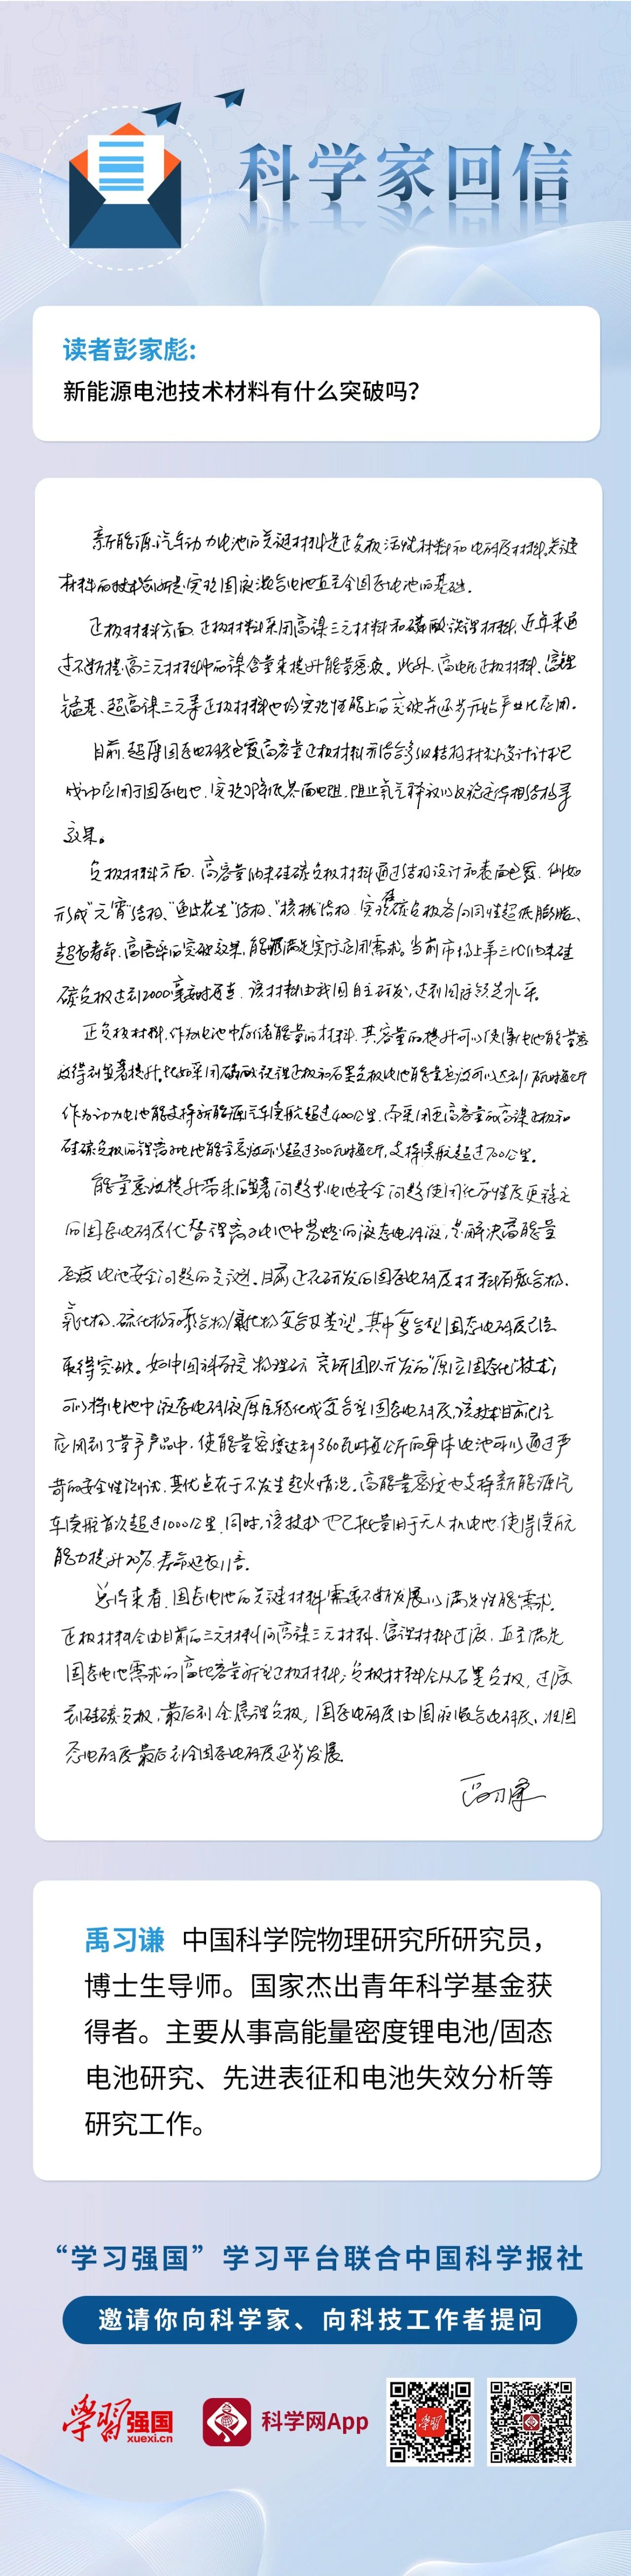 科学家回信
读者彭家彪:
新能源电池技术材料有什么突破吗?
新能源汽车动力电池的关键材料是正负极活性材料和电解质材料,关键
材料的技术创新是实现固液混合电池直至全固态电池的基础.
正极材料方面,正极材料采用高镍三元材料和磷酸铁锂材料,近年来通
过不断提高三元材料中的镍含量来提升能量密度。此外,高电压正极材料、富锂
锰基、超高镍三元等正极材料也均实现性能上的突破并逐步开始产业化应用.
目前,超薄固态电解质包覆高容量正极材料并结合多级结构材料设计技术已
成功应用于固态电池,实现了降低界面电阻、阻止氧气释放以及稳定体相结构等
效果。
负极材料方面,高容量纳米硅碳负极材料通过结构设计和表面包覆,例如
形成“元宵”结构、“鱼皮花生”结构、“核桃”结构,实现硅碳负极各向同性超低膨胀、
超长寿命、高倍率的突破效果,能够满足实际应用需求。当前市场上第三代纳米硅
碳负极达到2000毫安时每克,该材料由我国自主研发,达到国际领先水平。
正负极材料,作为电池中存储能量的材料,其容量的提升可以使得电池能量密
度得到显著提升。比如采用磷酸铁锂正极和石墨负极电池能量密度可以达到
作为动力电池能支持新能源汽车续航超过400公里,而采用更高容量的高镍正极和
硅碳负极的锂离子电池能量密度可以超过300瓦时每公斤,支持续航超过700公里。
能量密度提升带来的显著问题是电池安全问题,使用化学性质更稳定
的固态电解质代替锂离子电池中易燃的液态电解液,是解决高能量
密度电池安全问题的关键。目前正在研发的固态电解质材料有聚合物、
氧化物、硫化物和聚合物/氧化物复合及类型,其中复合型固态电解质已经
取得突破。如中国科学院物理研究所团队开发的“原位固态化”技术,
可以将电池中液态电解液原位转化成复合型固态电解质,该技术目前已经
应用到了量产产品中,使能量密度达到360瓦时每公斤的单体电池可以通过严
苛的安全性测试,其优点在于不发生起火情况。高能量密度也支持新能源汽
车续航首次超过1000公里,同时,该技术也已批量用于无人机电池,使得续航
能力提升20%,寿命延长1倍。
总体来看,固态电池的关键材料需要不断发展以满足性能需求.
正极材料会由目前的三元材料向高镍三元材料、富锂材料过渡,直至满足
固态电池需求的高比容量新型正极材料;负极材料会从石墨负极,过渡
到硅碳负极,最后到金属锂负极;固态电解质由固液混合电解质、准固
态电解质最后到全固态电解质逐步发展.
禹习谦
禹习谦 中国科学院物理研究所研究员,
博士生导师。国家杰出青年科学基金获
得者。主要从事高能量密度锂电池/固态
电池研究、先进表征和电池失效分析等
研究工作。
“学习强国”学习平台联合中国科学报社
邀请你向科学家、向科技工作者提问
学习强国
xuexi.cn
科学网App
学习